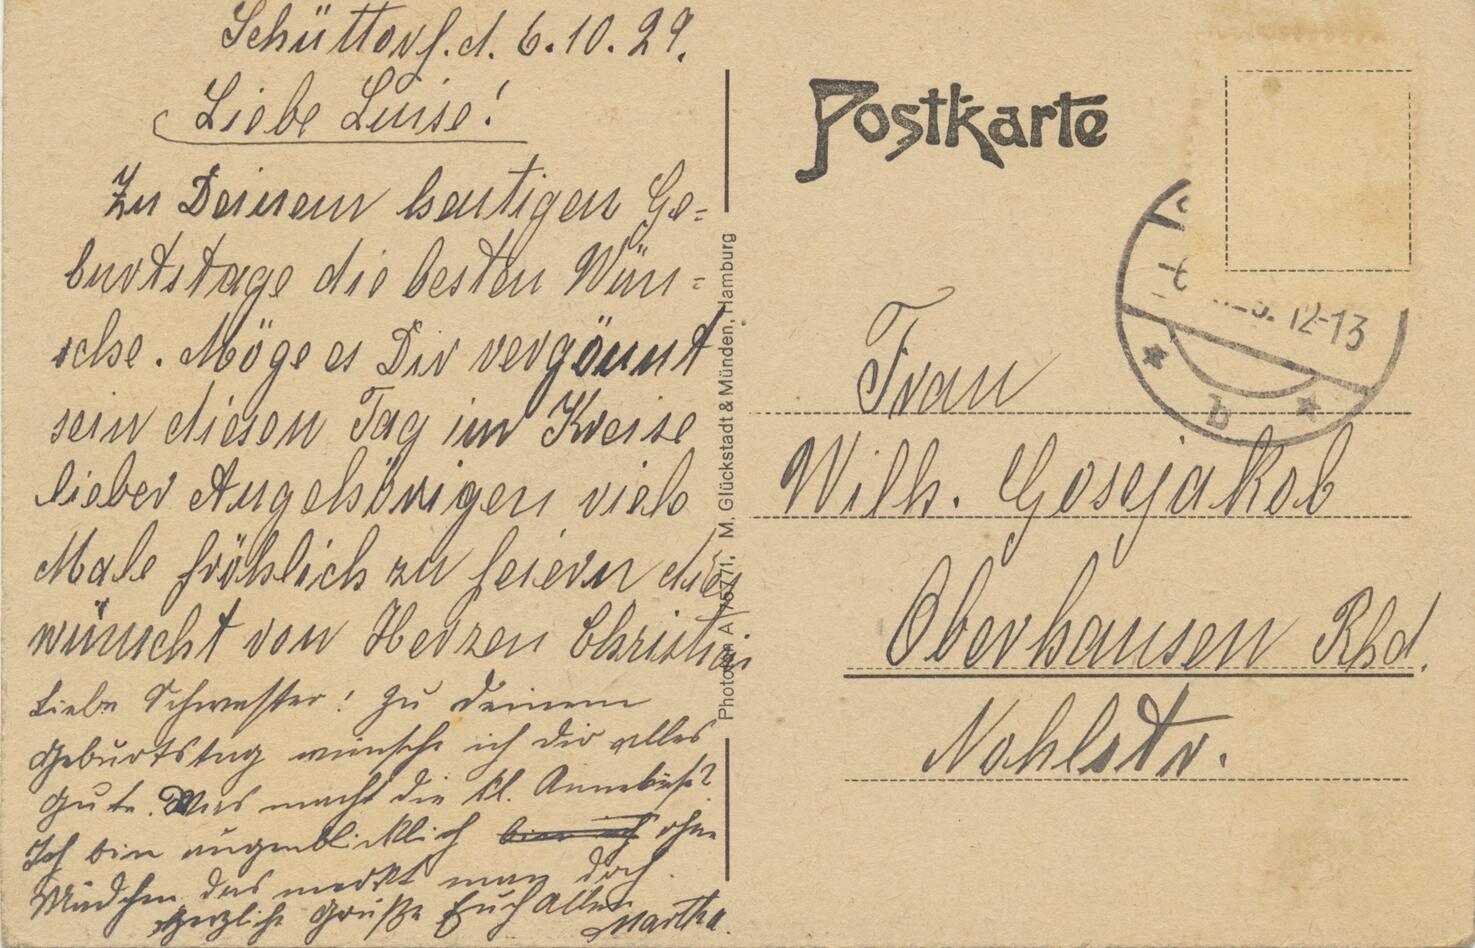 Schüttorf. d. 6.10.29.
Liebe Luise!
Zu Deinem heutigen Ge-
burtstage die besten Wün-
sche. Möge es Dir vergönnt
sein diesen Tag im Kreise
lieber Angehörigen viele
Male fröhlich zu feiern dies
wünscht von Herzen Christian
Liebe Schwester! Zu Deinem
Geburtstag wünsche ich dir alles
Gute. Was macht die kl. Annebise?
Ich bin augenblicklich ohne
Mädchen, das merkt man doch.
Herzliche Grüße Euch Allen
Martha.
Photochn A 75771. M. Glückstadt & Münden, Hamburg
Postkarte
12-13
b
Frau
Wilh. Gosejakob
Oberhausen Rhd.
Nohlstr.